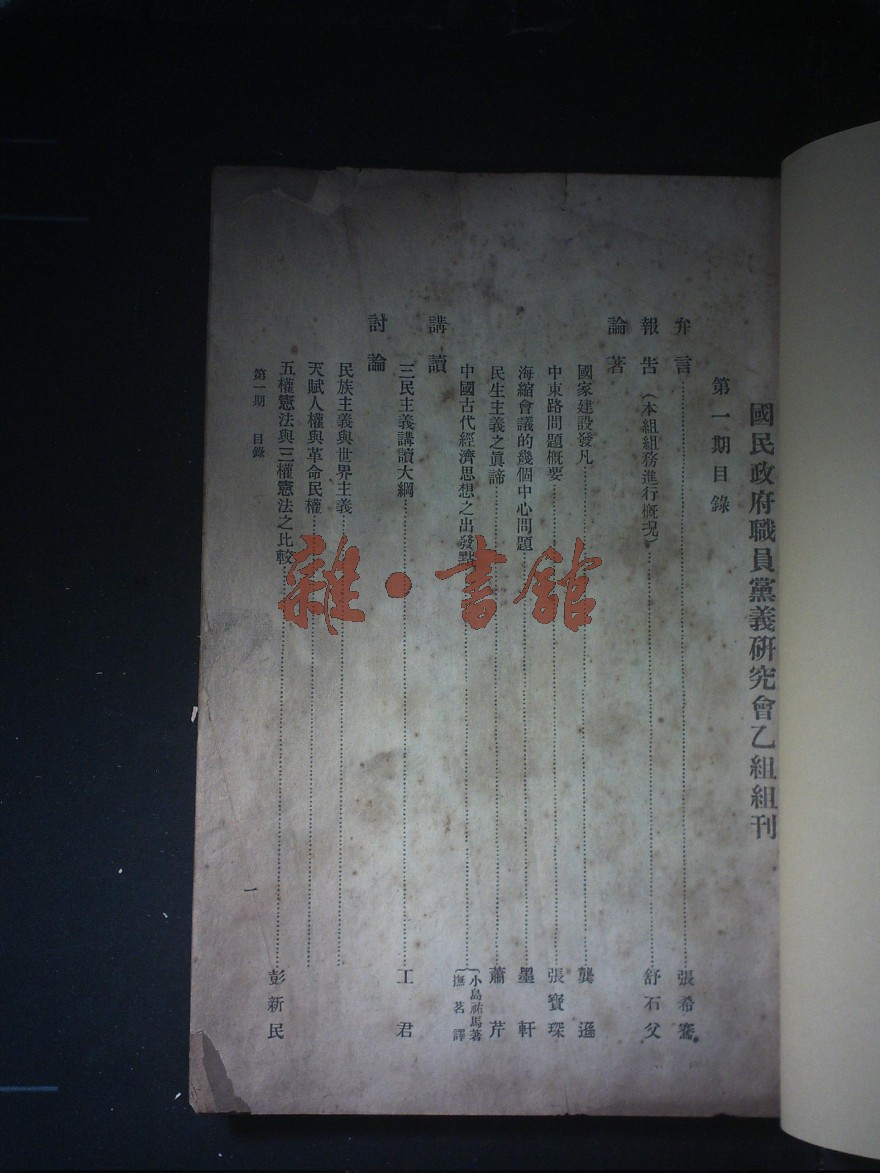 國民政府職員黨義研究會乙組組刊
第一期目錄
弁言 張希騫
報告(本組組務進行概況) 舒石父
論著
國家建設發凡 龔遜
中東路問題概要 張寶琛
海縮會議的幾個中心問題 墨軒
民生主義之眞諦 蕭芹
中國古代經濟思想之出發點 小島祐馬著 撫茗譯
講讀
三民主義講讀大綱 工君
討論
民族主義與世界主義
天賦人權與革命民權
五權憲法與三權憲法之比較 彭新民
第一期 目錄
一
雜·書館